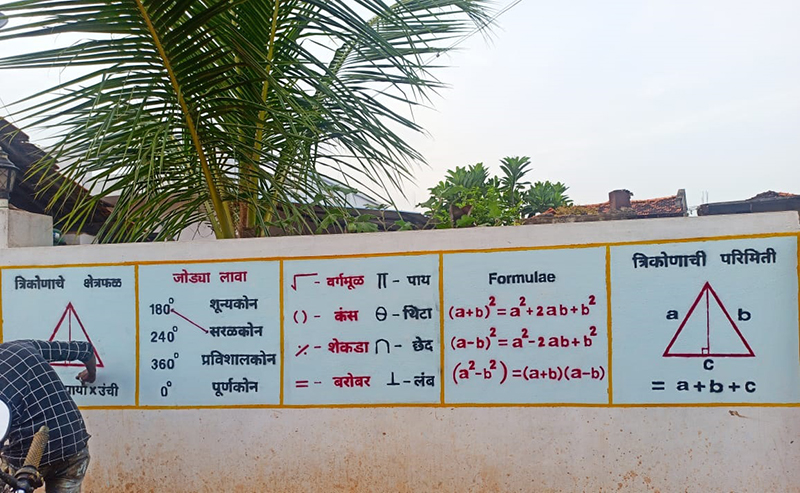 त्रिकोणाचे क्षेत्रफळ
पाया x उंची
जोड्या लावा
180° शून्यकोन
240° सरळकोन
360° प्रविशालकोन
0° पूर्णकोन
√ - वर्गमूळ π - पाय
() - कंस θ - थिटा
٪ - शेकडा ∩ - छेद
= - बरोबर ⊥ - लंब
Formulae
(a+b)²=a²+2ab+b²
(a-b)²=a²-2ab+b²
(a²-b²)=(a+b)(a-b)
त्रिकोणाची परिमिती
a b
c
= a+b+c